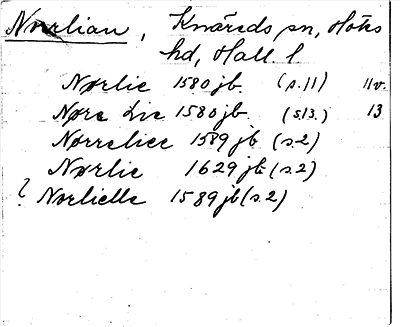 Norlian, Knäreds sn, Höks
hd, Hall. l
Nørlie 1580 jb. (s.11) 11v.
Nørre Lie 1580 jb. (s13.) 13
Nørreliee 1589 jb (s.2)
Nørlie 1629 jb (s.2)
? Nørlielle 1589 jb (s.2)